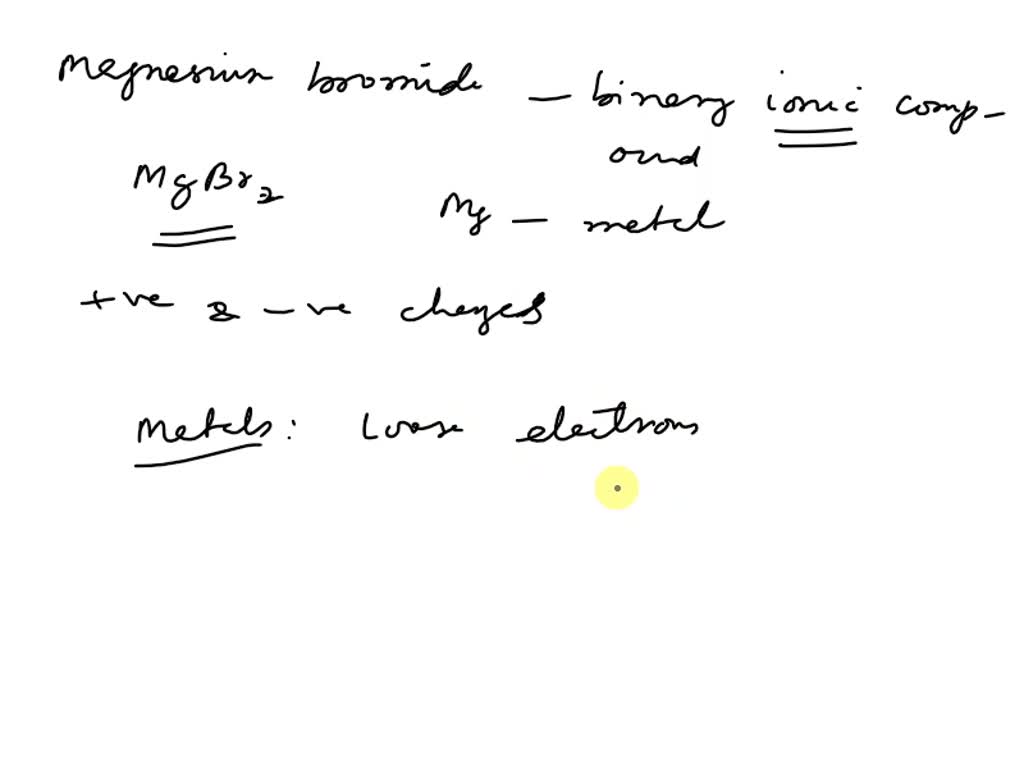 Magnesium bromide - binary ionic comp-
ound
MgBr2
Mg - metal
+ve & -ve charges
Metals: Loose electrons